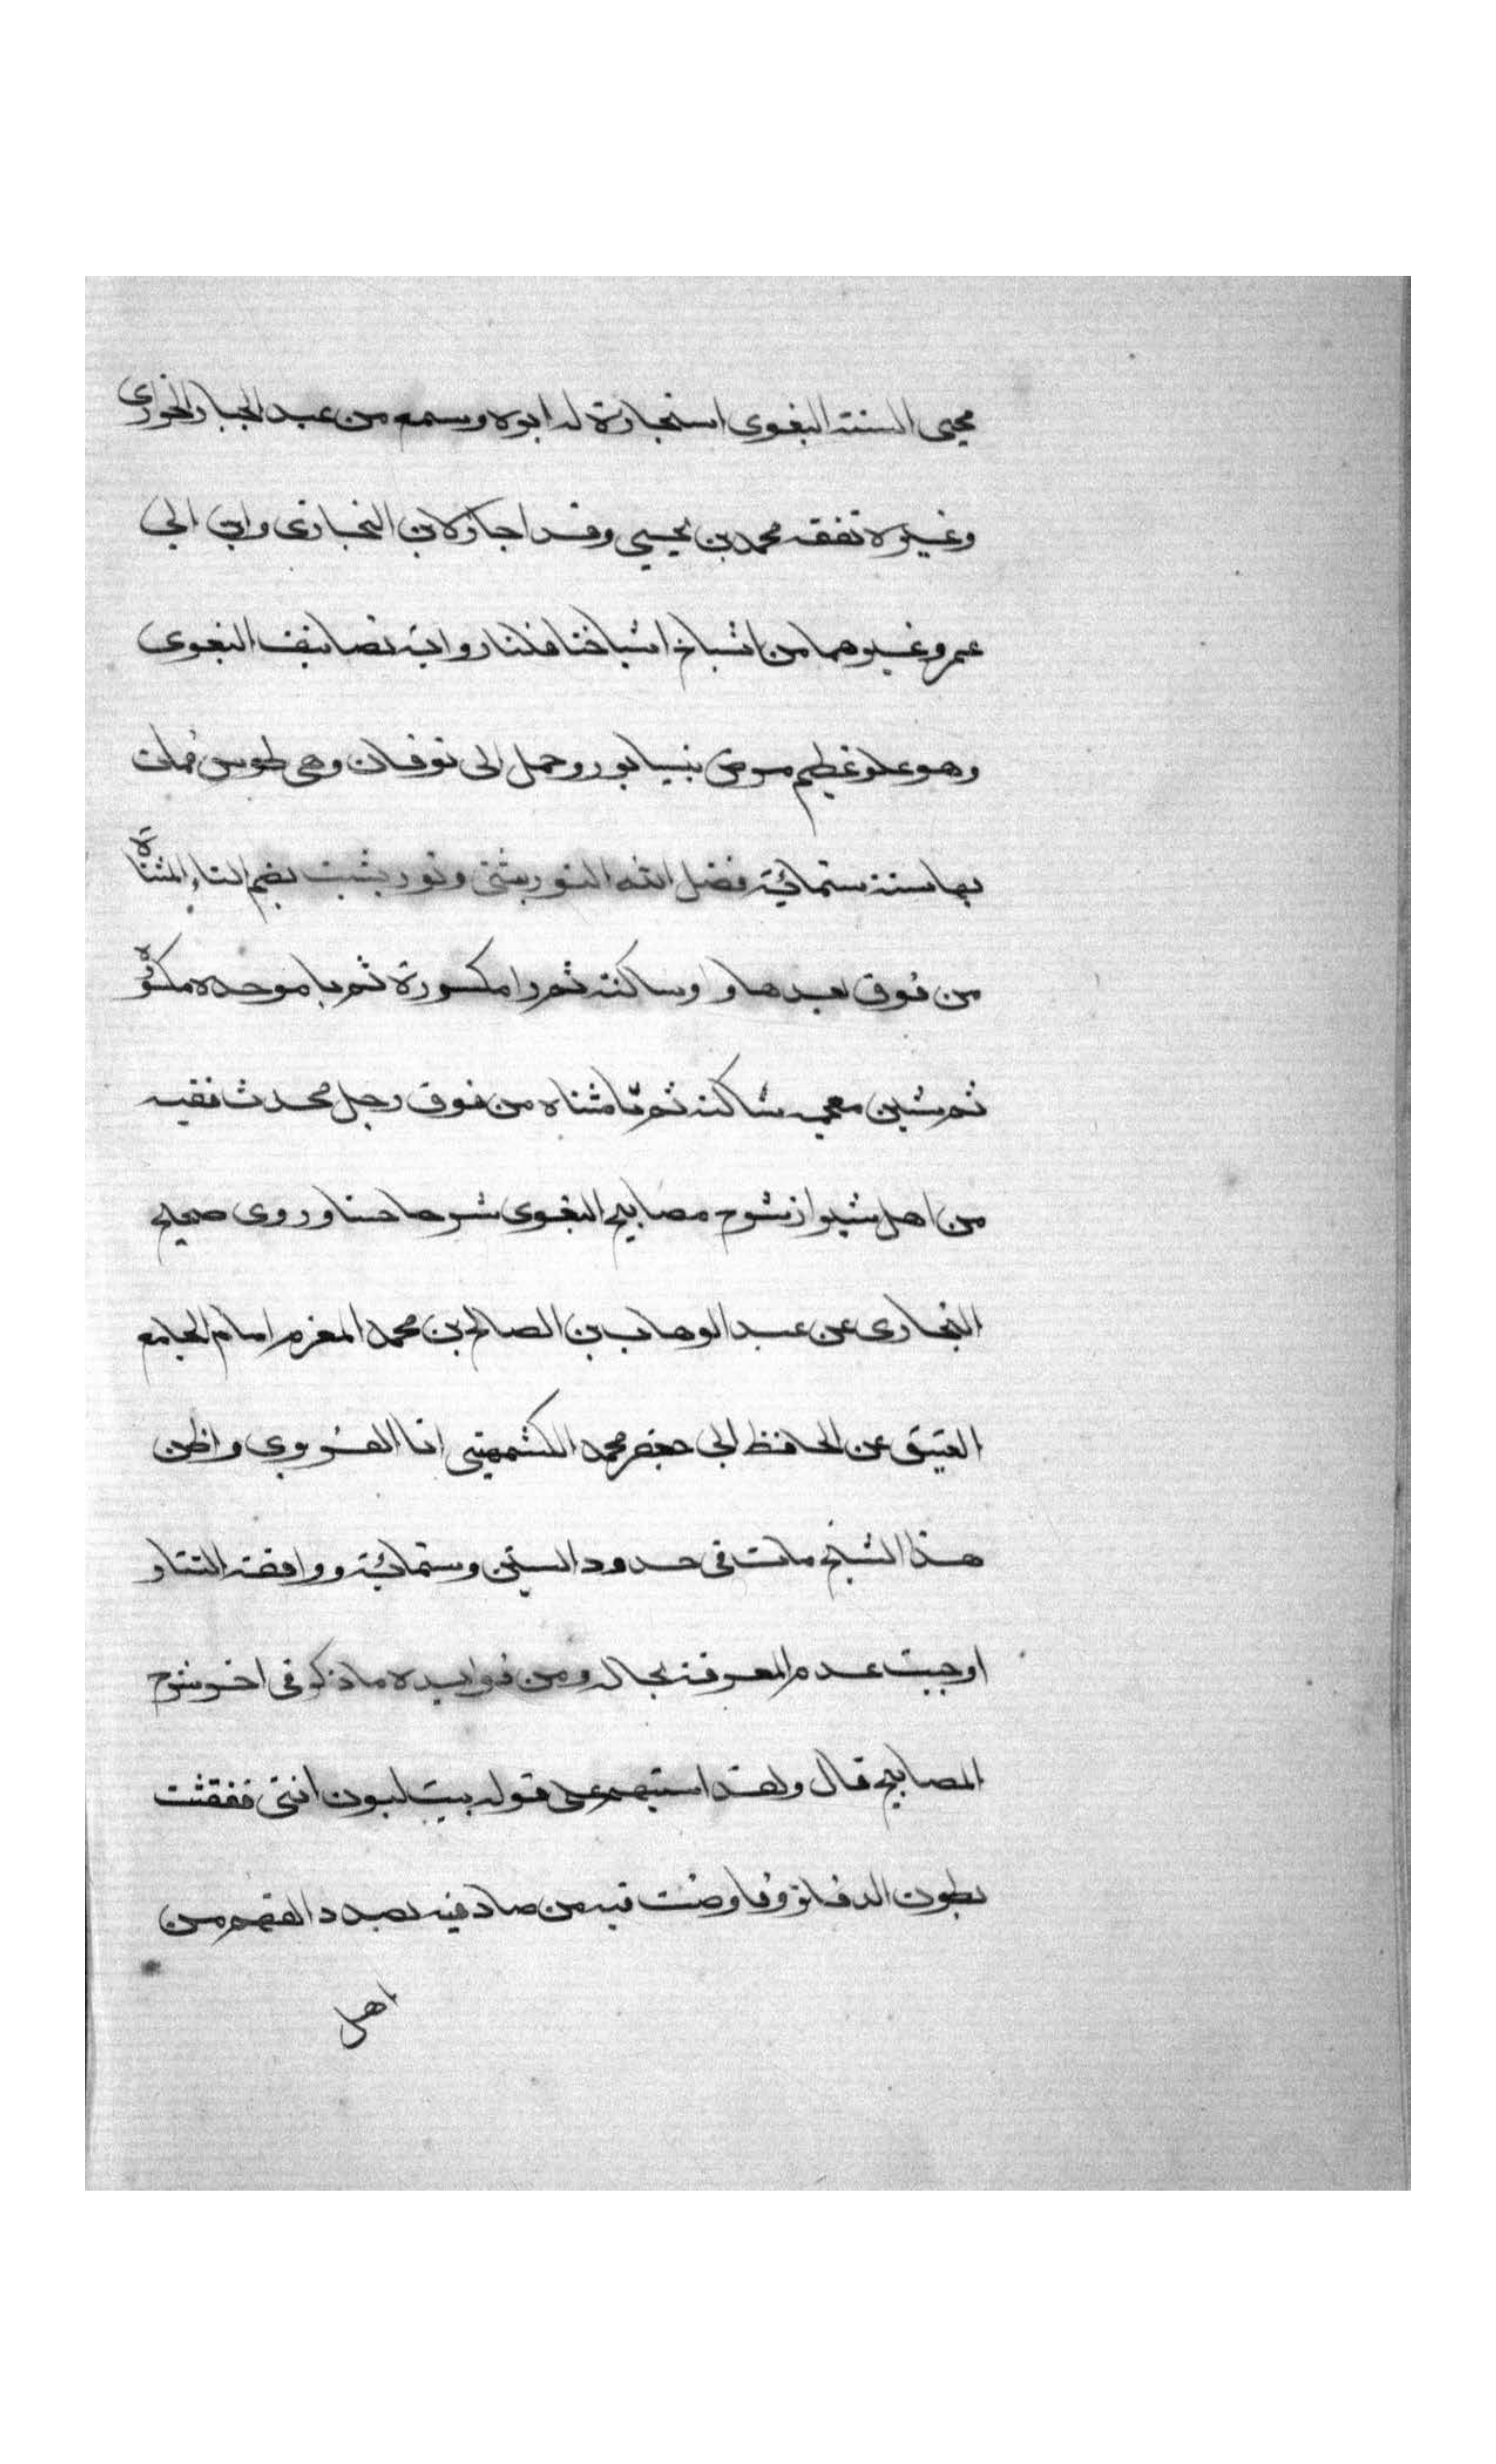 محيى السنة البغوى استجازة له ابوه وسمع من عبد الجبار الخوارى
وغيره تفقه محمد بن يحيى وقد اجاز لابن البخارى وابن ابى
عمر وغيرهما من اشياخ اشياخنا فلنا رواية تصانيف البغوى
وهو علو عظيم مرض بنيسابور وحمل الى نوقان وهى طوس فمات
بها سنة ستمائة فضل الله التوربشتى وتوربشت بضم التاء المثناة
من فوق بعدها واو ساكنة ثم را مكسورة ثم با موحده مكسورة
ثم شين معجمه ساكنه ثم تا مثناه من فوق رجل محدث فقيه
من اهل شيراز شرح مصابيح البغوى شرحا حسنا وروى صحيح
البخارى عن عبد الوهاب بن الصالح بن محمد المغرم امام الجامع
العتيق عن الحافظ ابى جعفر محمد الكشميهنى انا الفربرى واظن
هذا الشيخ مات فى حدود الستين وستمائة وواقعة التتار
اوجبت عدم المعرفة بحاله ومن فوايده ما ذكر فى اخر شرح
المصابيح قال ولقد استبهم على قوله بيت لبون انثى ففتشت
بطون الدفاتر وفاوضت فيه من صادفته بصدد الفهم من
اهل